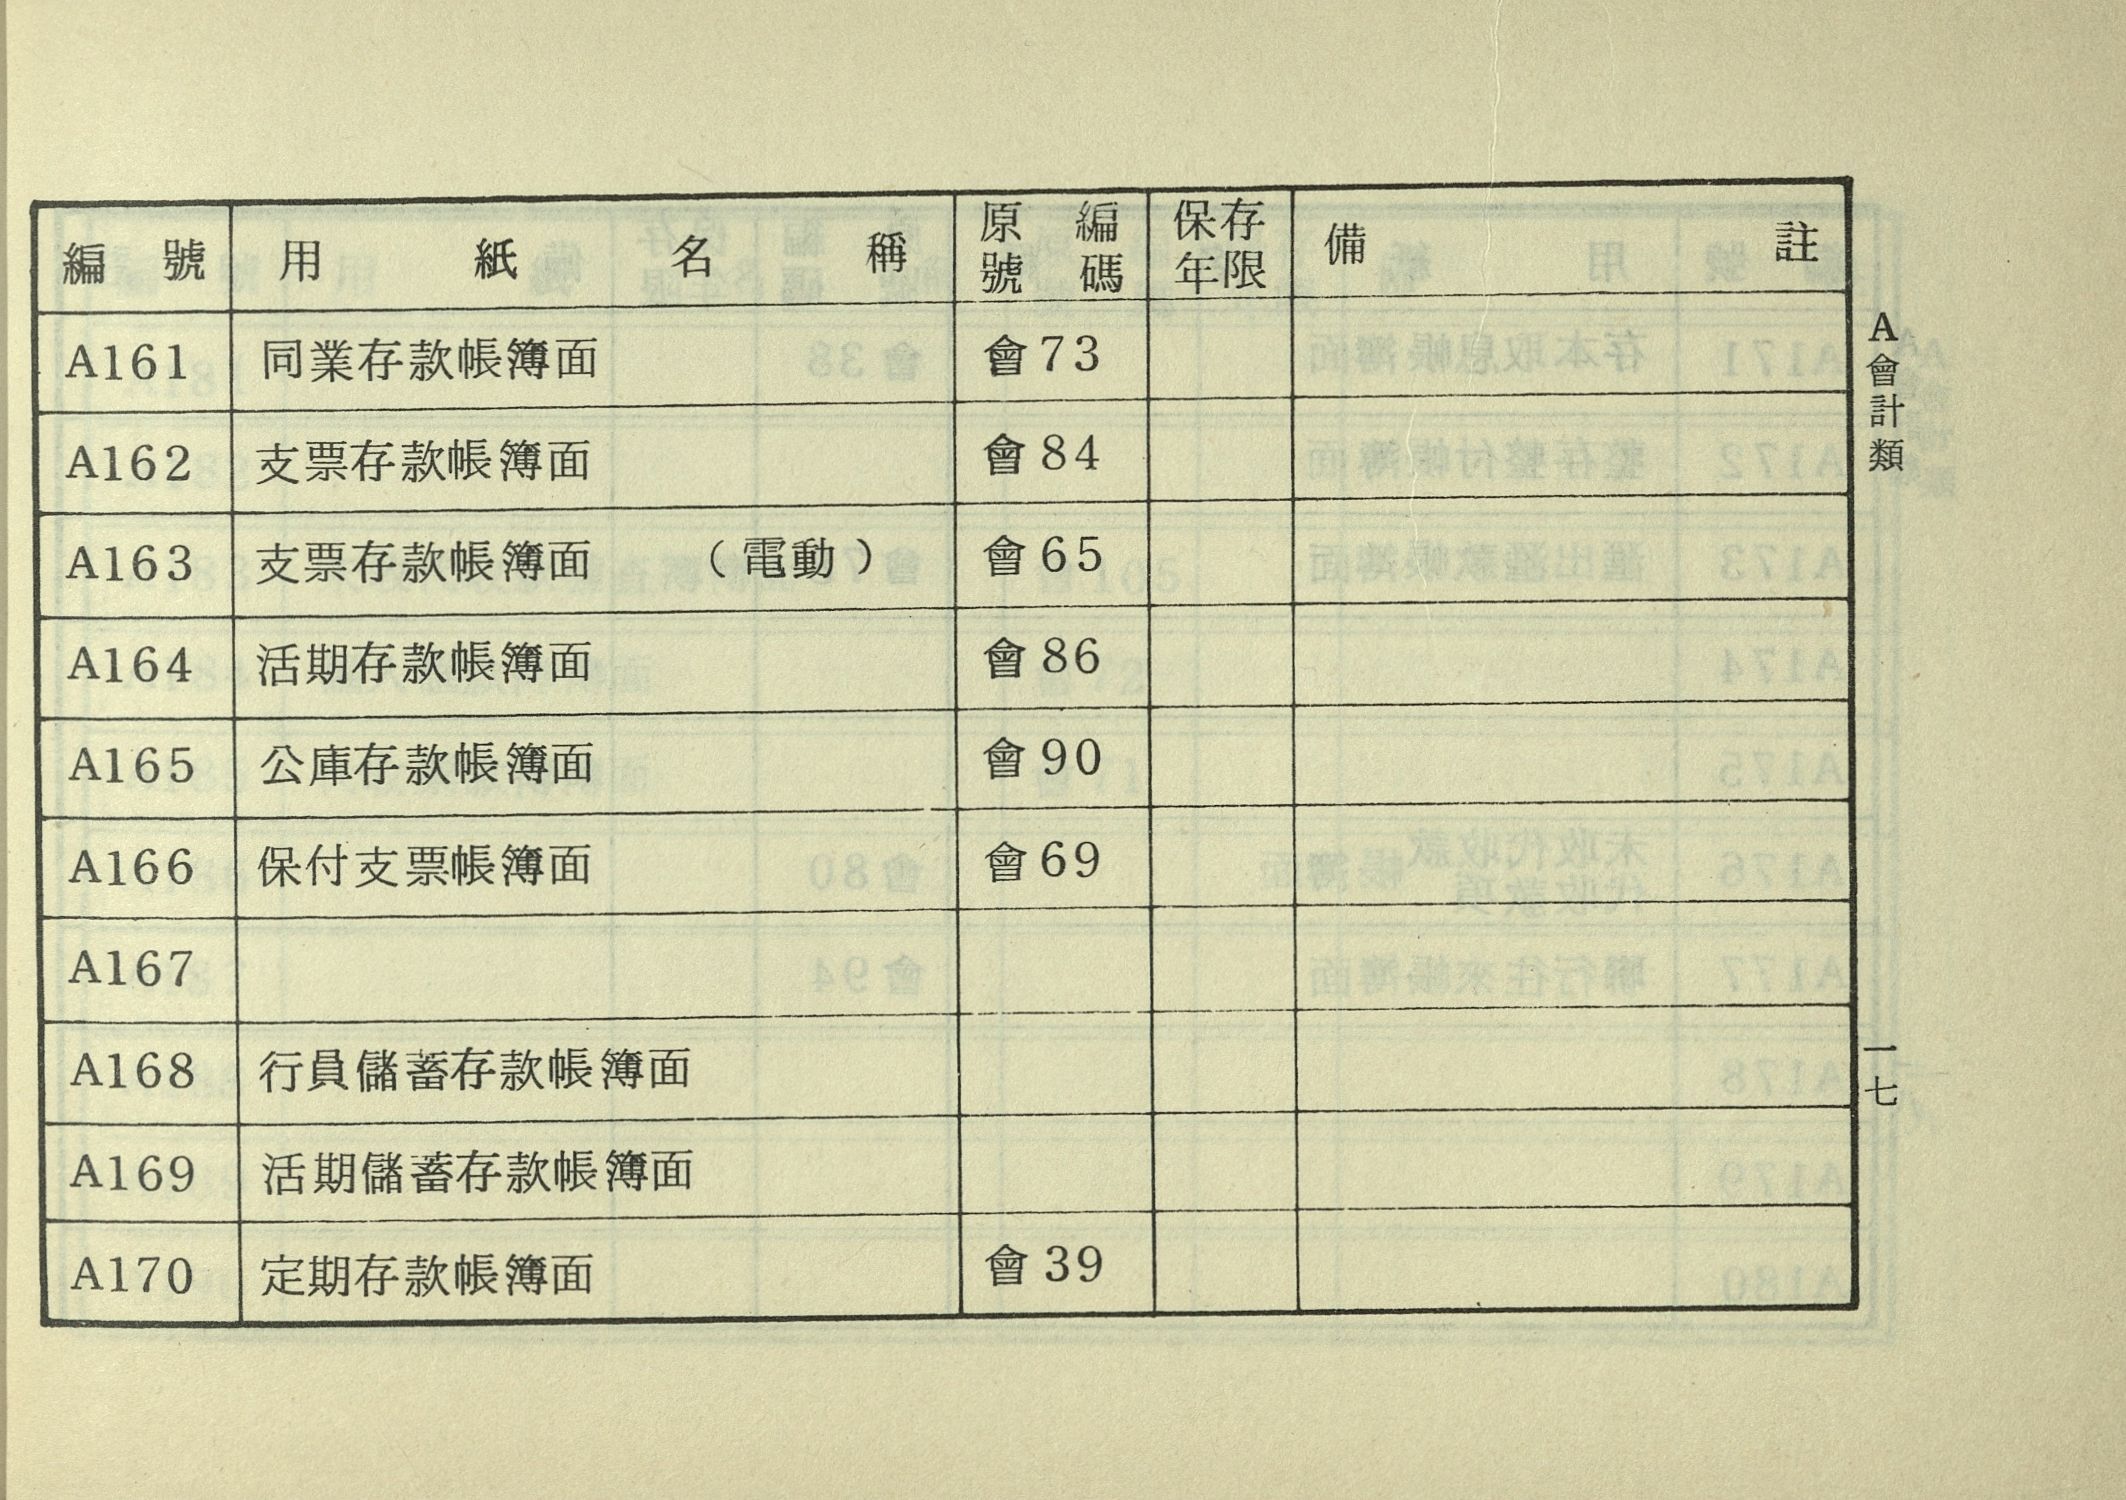 編號 用紙名稱 原編號碼 保存年限 備註
A161 同業存款帳簿面 會73
A162 支票存款帳簿面 會84
A163 支票存款帳簿面 （電動） 會65
A164 活期存款帳簿面 會86
A165 公庫存款帳簿面 會90
A166 保付支票帳簿面 會69
A167
A168 行員儲蓄存款帳簿面
A169 活期儲蓄存款帳簿面
A170 定期存款帳簿面 會39
A會計類
一七